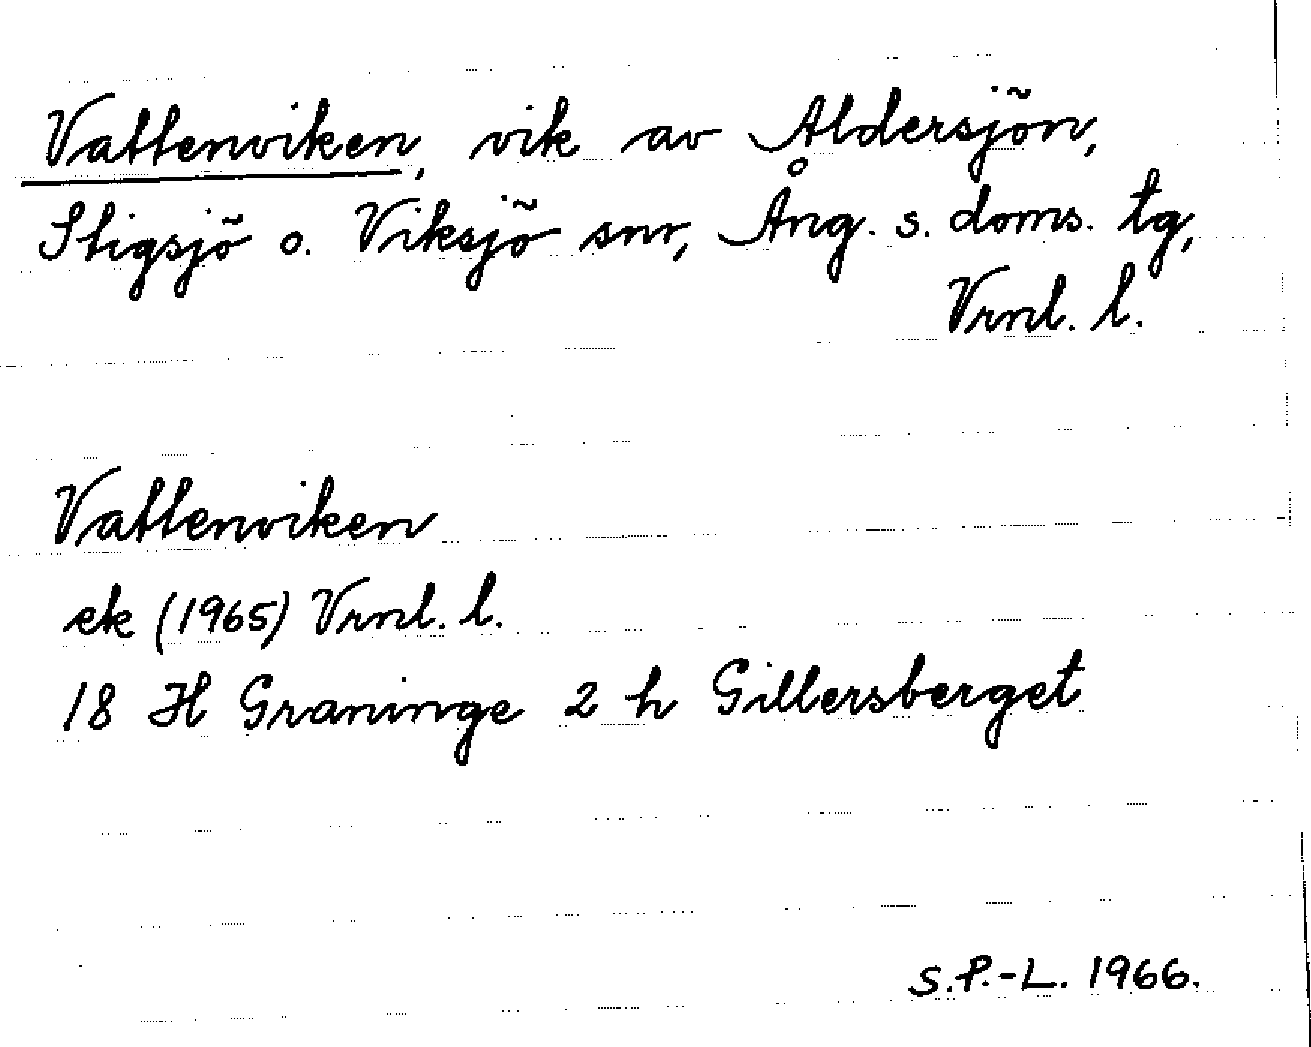 Vattenviken, vik av Aldersjön,
Stigsjö o. Viksjö snr, Ång. s. doms. tg,
Vrnl. l.
Vattenviken
ek (1965) Vrnl. l.
18 H Graninge 2 h Gillersberget
S.P.-L. 1966.